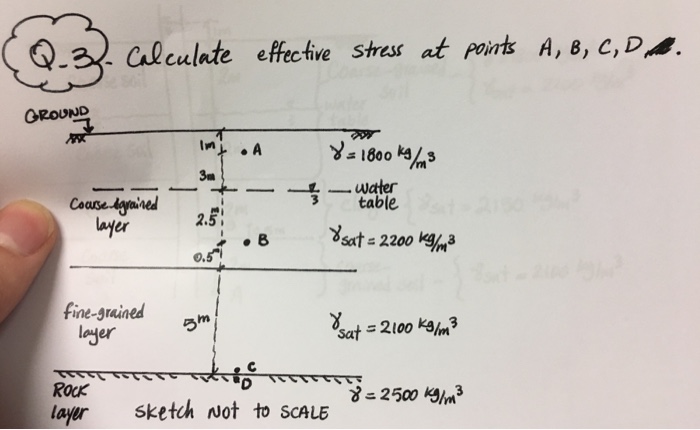 Q-3. Calculate effective stress at points A, B, C, D.
GROUND
1m
• A
γ = 1800 kg/m³
3m
water table
Coarse-grained layer
2.5m
• B
γsat = 2200 kg/m³
0.5m
fine-grained layer
5m
γsat = 2100 kg/m³
• C
• D
ROCK layer
γ = 2500 kg/m³
sketch Not to SCALE